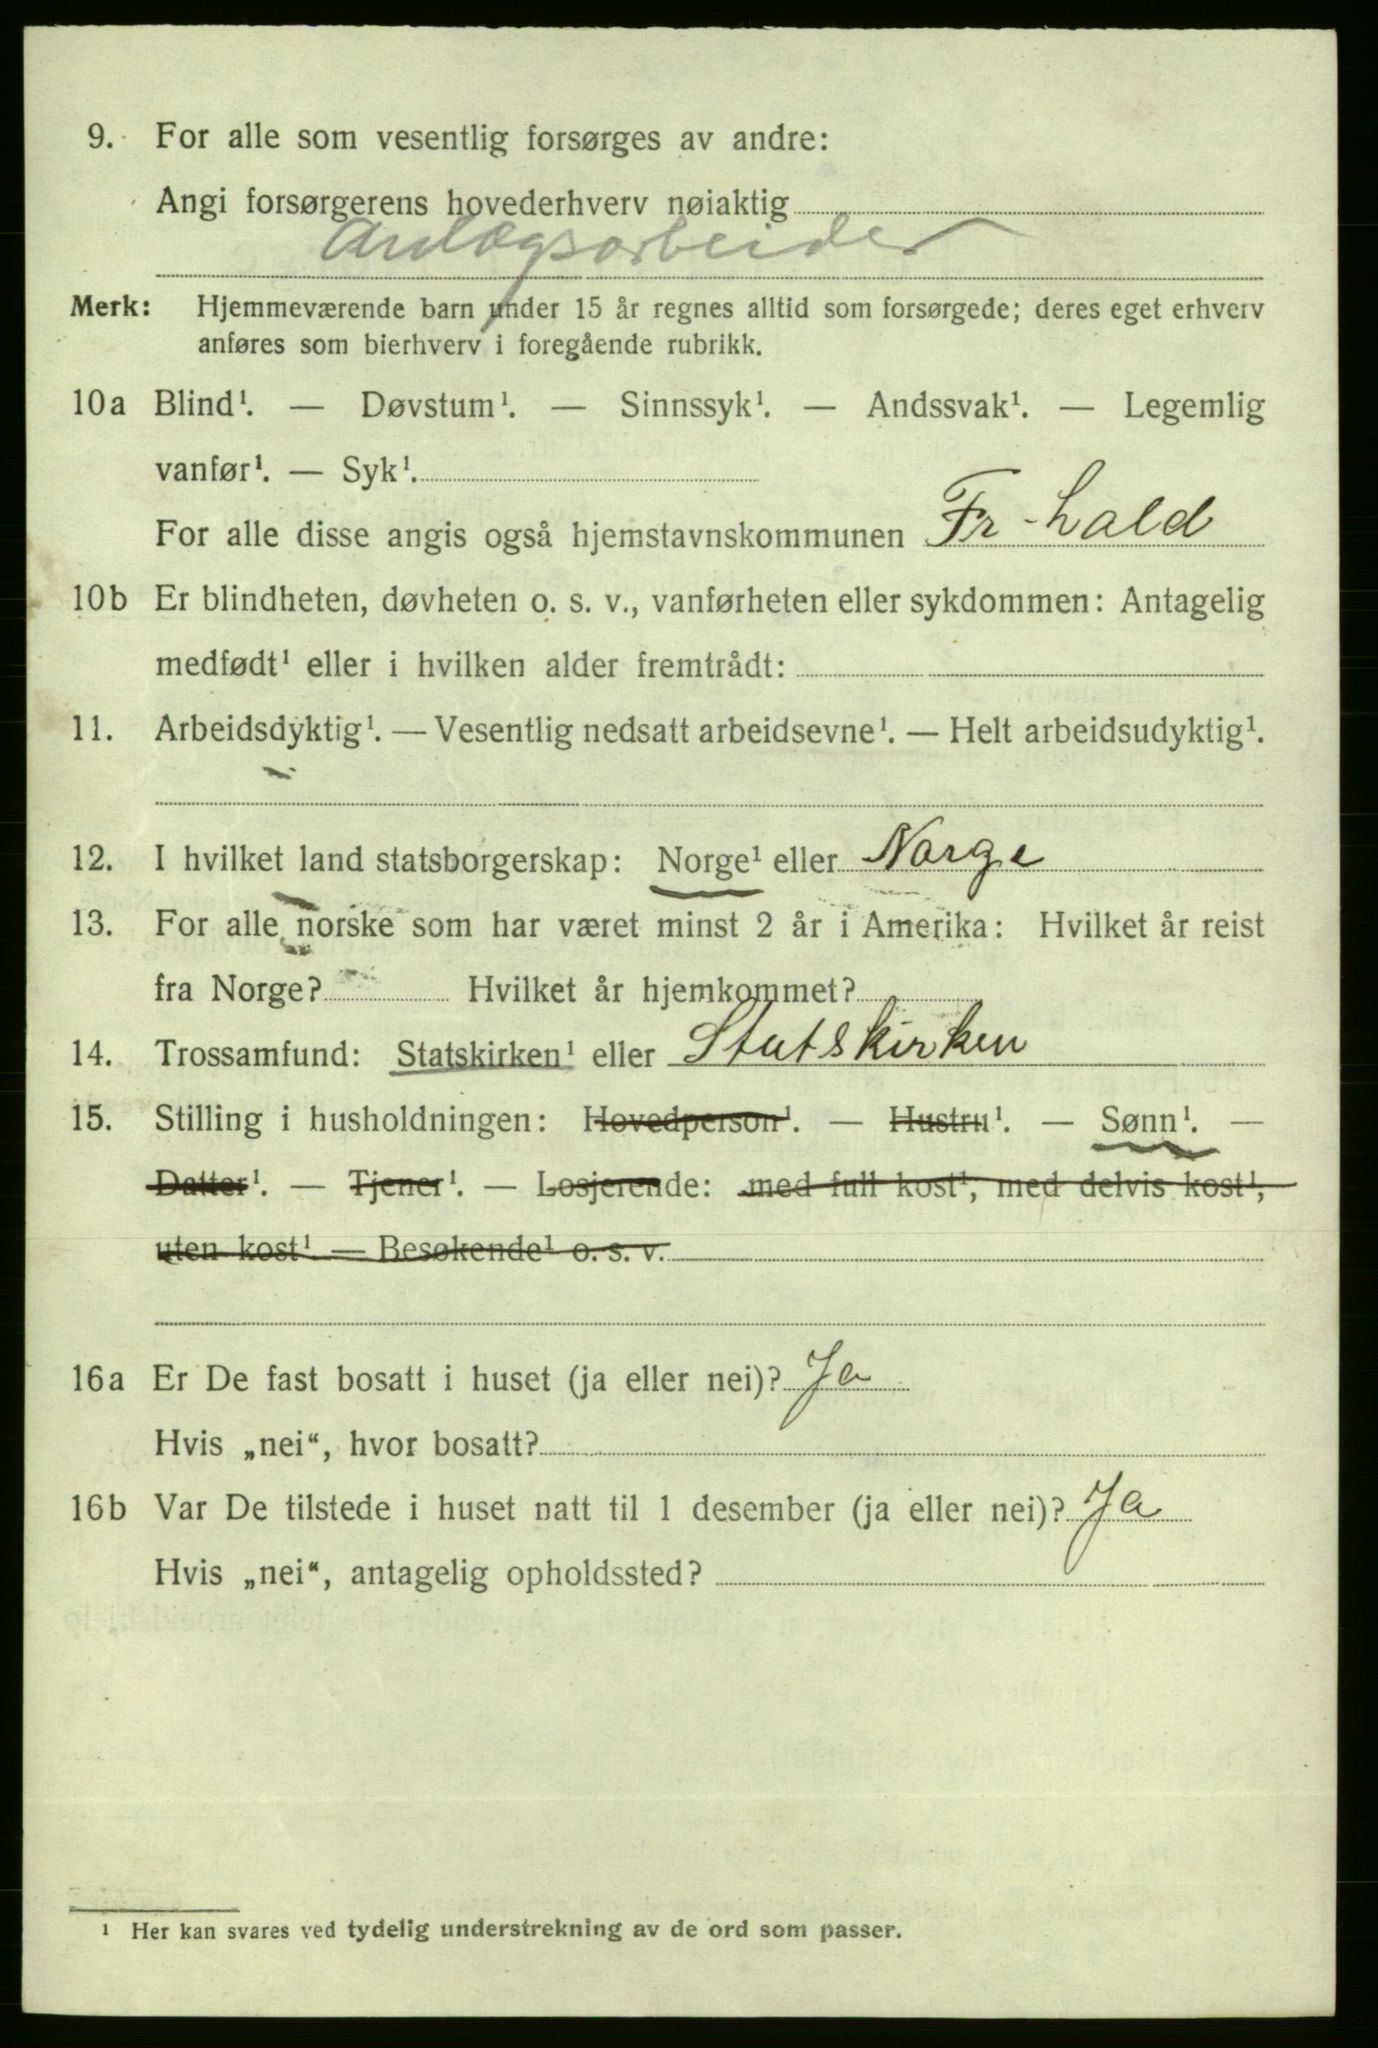 9. For alle som vesentlig forsørges av andre:
Angi forsørgerens hovederhverv nøiaktig
Anlægsarbeider
Merk: Hjemmeværende barn under 15 år regnes alltid som forsørgede; deres eget erhverv
anføres som bierhverv i foregående rubrikk.
10a Blind¹. — Døvstum¹. — Sinnssyk¹. — Andssvak¹. — Legemlig
vanfør¹. — Syk¹.
For alle disse angis også hjemstavnskommunen Fr-hald
10b Er blindheten, døvheten o. s. v., vanførheten eller sykdommen: Antagelig
medfødt¹ eller i hvilken alder fremtrådt:
11. Arbeidsdyktig¹. — Vesentlig nedsatt arbeidsevne¹. — Helt arbeidsudyktig¹.
12. I hvilket land statsborgerskap: Norge¹ eller Norge
13. For alle norske som har været minst 2 år i Amerika: Hvilket år reist
fra Norge? Hvilket år hjemkommet?
14. Trossamfund: Statskirken¹ eller Statskirken
15. Stilling i husholdningen: Hovedperson¹. — Hustru¹. — Sønn¹. —
Datter¹. — Tjener¹. — Losjerende: med full kost¹, med delvis kost¹,
uten kost¹. — Besøkende¹ o. s. v.
16a Er De fast bosatt i huset (ja eller nei)? Ja
Hvis „nei“, hvor bosatt?
16b Var De tilstede i huset natt til 1 desember (ja eller nei)? Ja
Hvis „nei“, antagelig opholdssted?
¹ Her kan svares ved tydelig understrekning av de ord som passer.